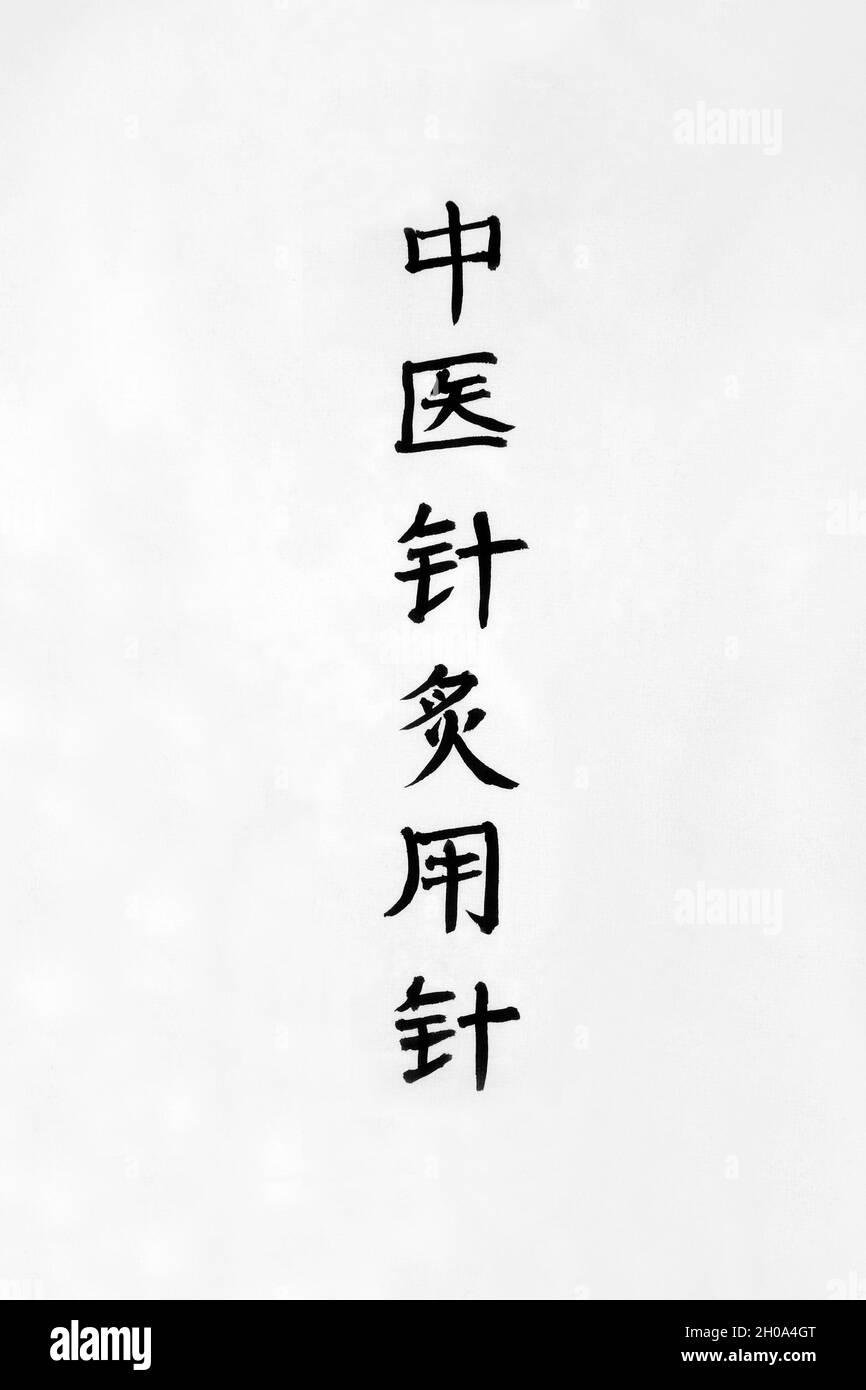 中医针灸用针
alamy
alamy
alamy
Image ID: 2H0A4GT
www.alamy.com